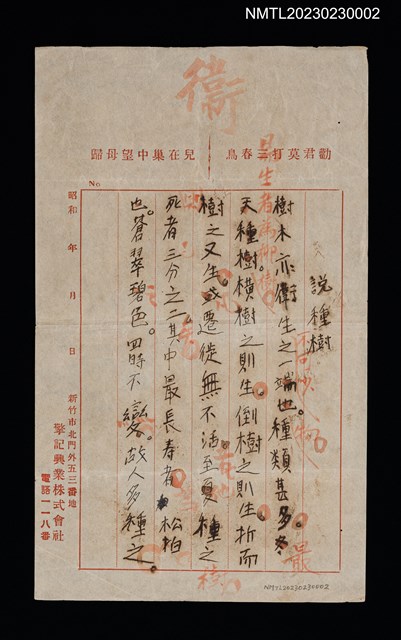 NMTL20230230002
衛
勸君莫打三春鳥
兒在巢中望母歸
No
說種樹
樹木亦衛生之一端也。種類甚多。冬
天種樹。橫樹之則生。倒樹之則生。折而
樹之又生。或遷徙無不活。至夏種之
死者三分之二。其中最長壽者松柏
也。蒼翠碧色。四時不變。故人多種之。
昭和 年 月 日
新竹市北門外五三番地
擎記興業株式會社
電話一一八番
NMTL20230230002